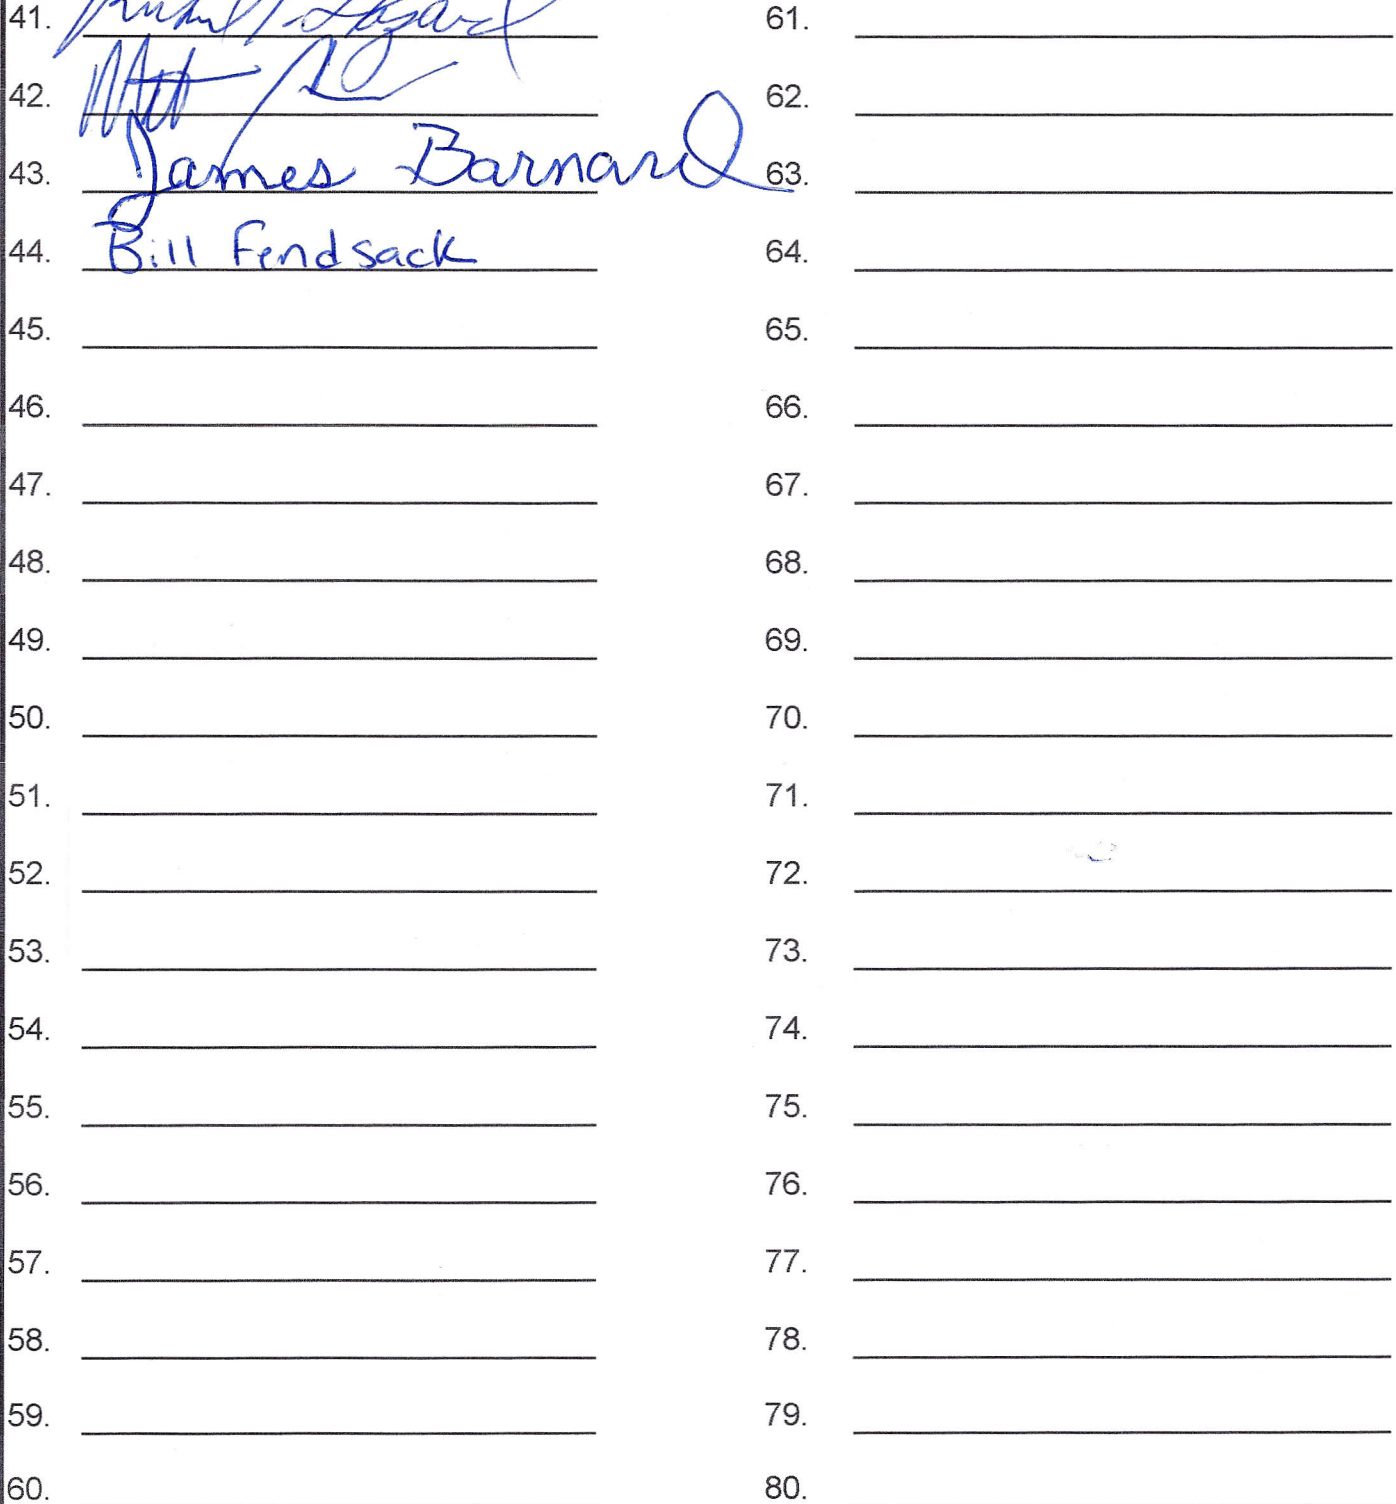 41.
42. Matt
43. James Barnard
44. Bill Fendsack
45.
46.
47.
48.
49.
50.
51.
52.
53.
54.
55.
56.
57.
58.
59.
60.
61.
62.
63.
64.
65.
66.
67.
68.
69.
70.
71.
72.
73.
74.
75.
76.
77.
78.
79.
80.